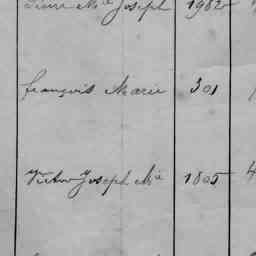 Pierre Mie Joseph 1982
François Marie 301
Victor Joseph Mie 1805 4